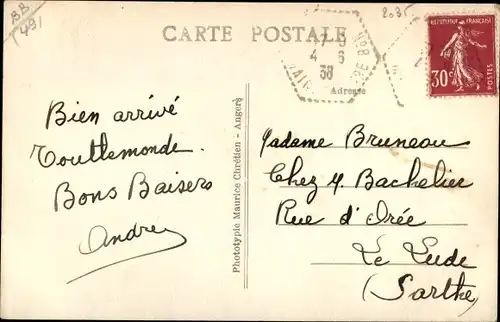 BB
491
2035
CARTE POSTALE
N°8
4 6
38
Adresse
REPUBLIQUE FRANÇAISE
30c
POSTES
Bien arrivé
Touttemonde.
Bons Baisers
André
Phototypie Maurice Chrétien - Angers
Madame Bruneau
Chez M. Bachelier
Rue d'Orée
Le Lude
(Sarthe)